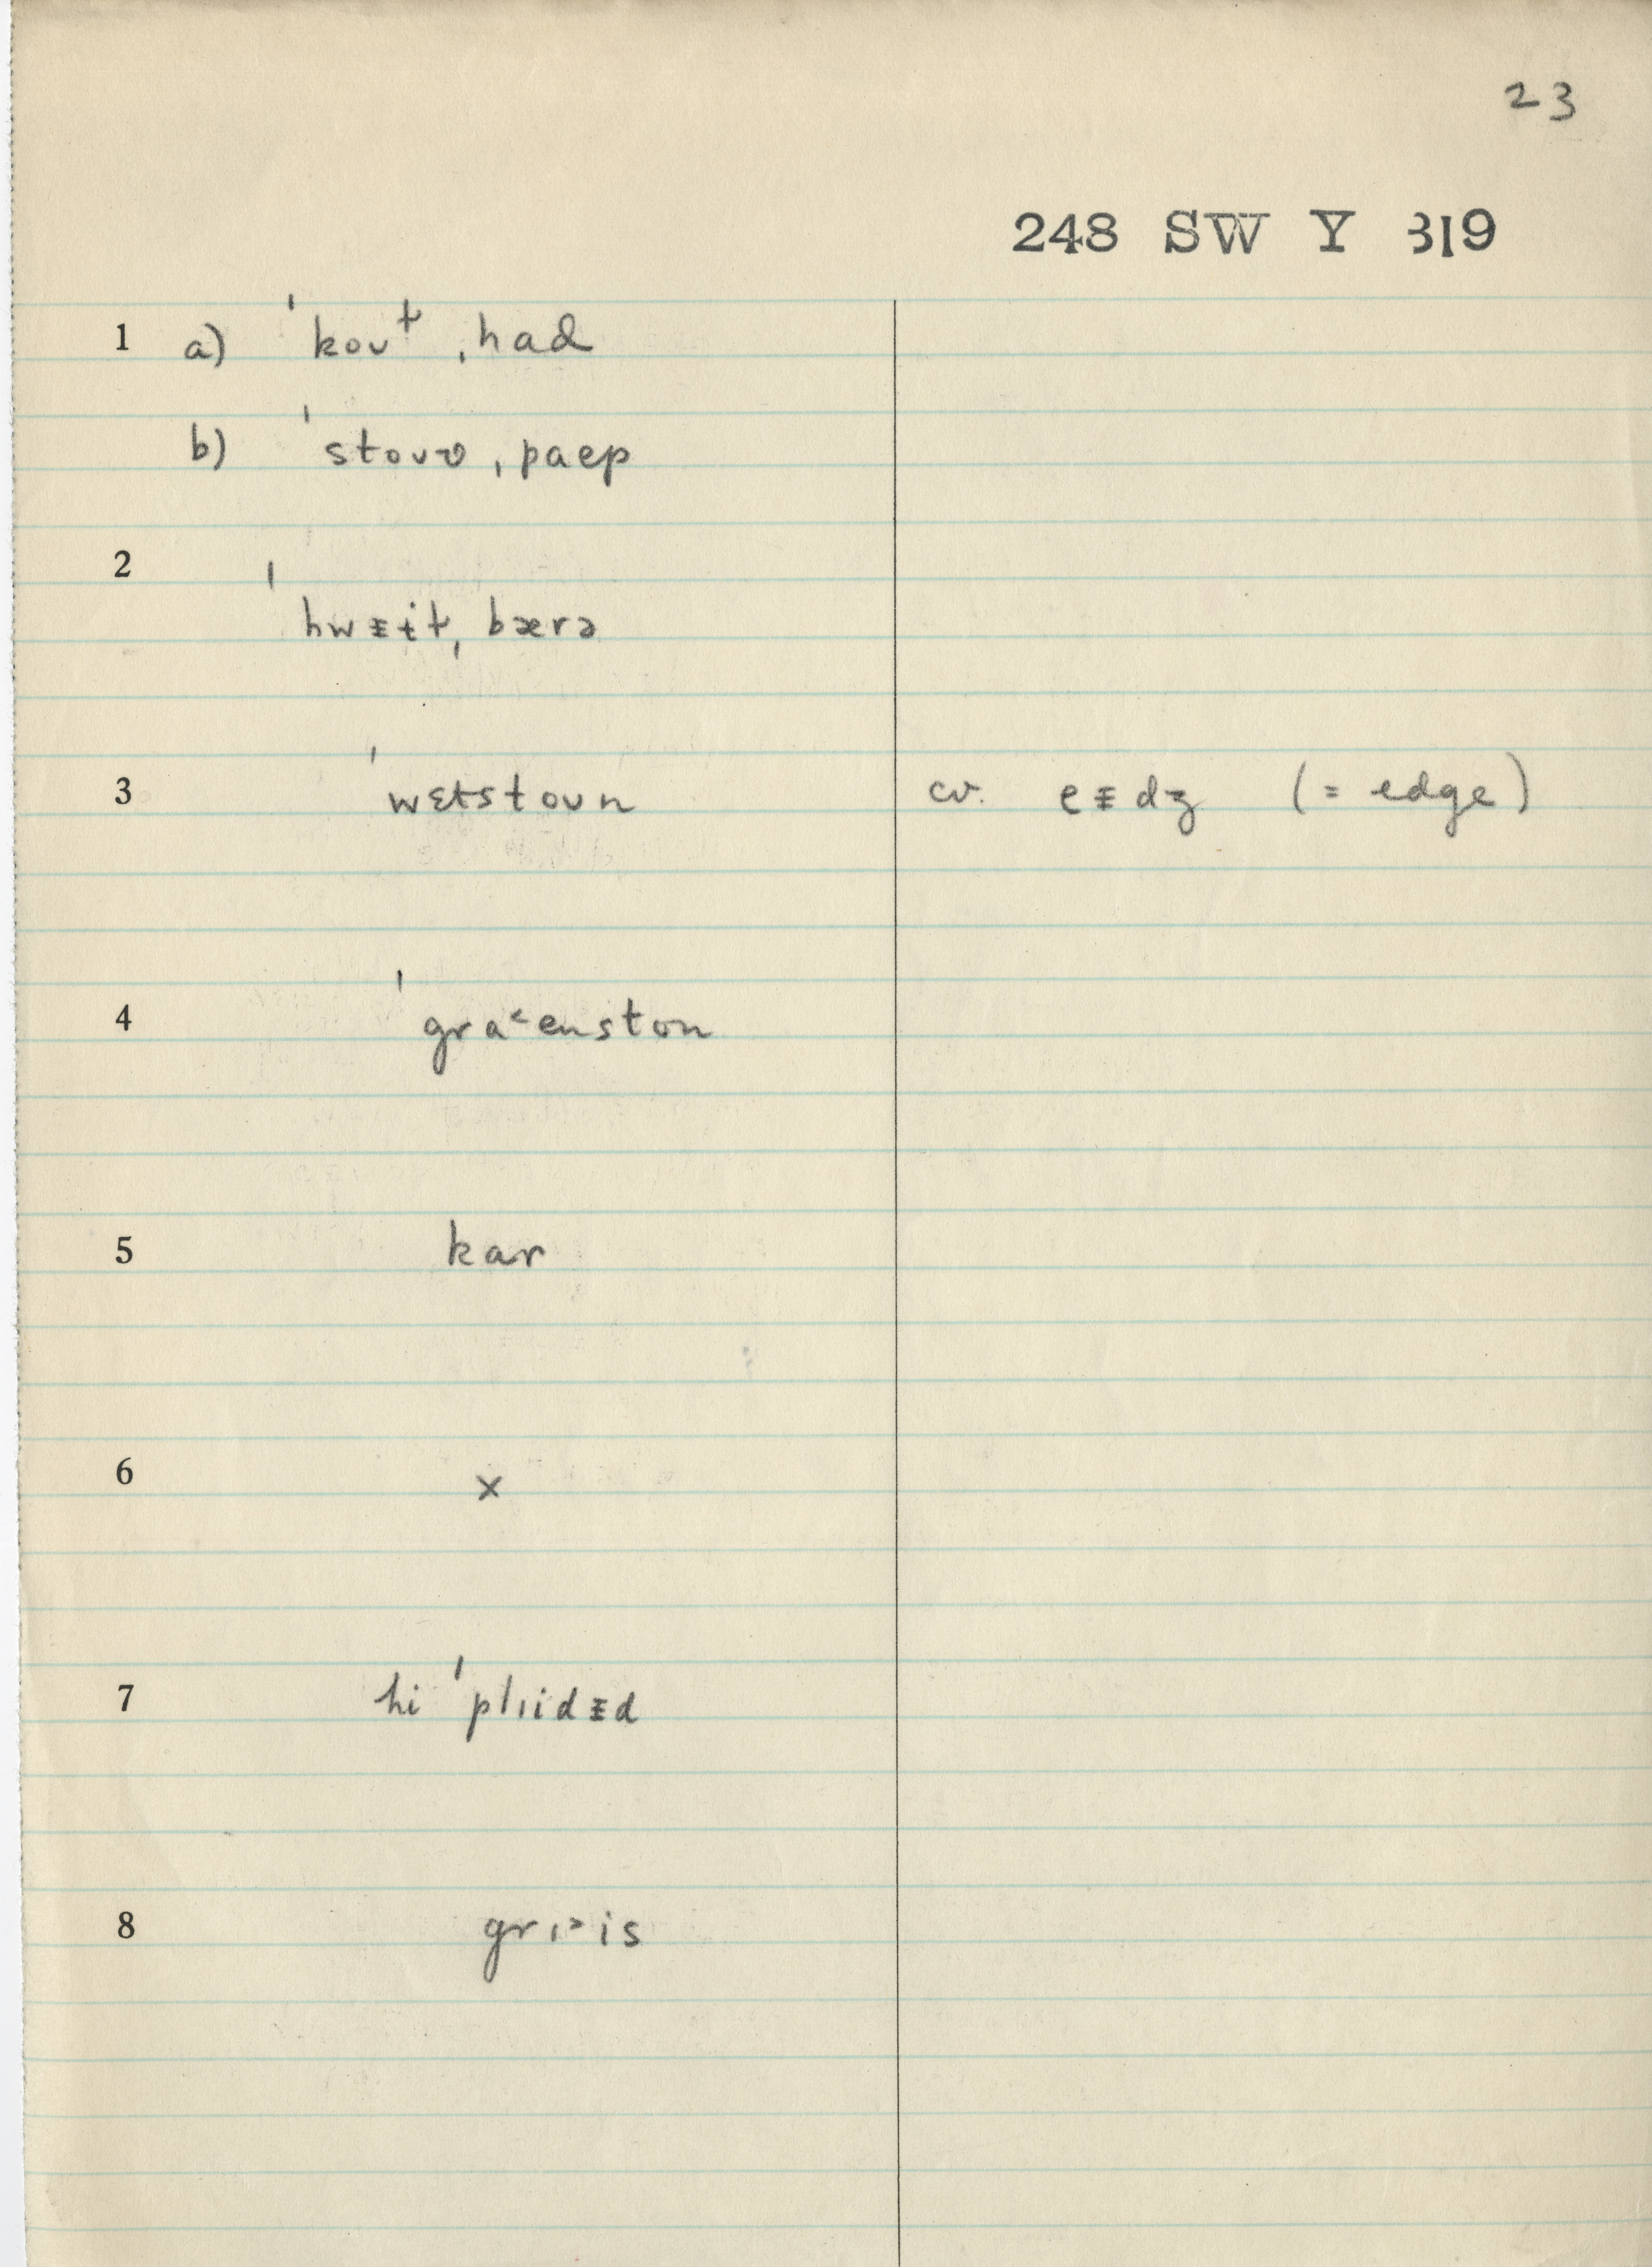 23
248 SW Y 319
1 a) ˈkoʊt ˌhad
b) ˈstoʊv ˌpaep
2 ˈhwᵻɨt ˌbærə
3 ˈwɛtstoʊn cv. eᵻdʒ (= edge)
4 ˈgra˂enston
5 kar
6 x
7 hi ˈplɪidᵻd
8 grɪ˃is